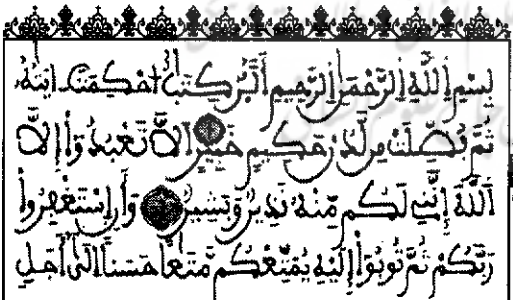 بِسْمِ اِ۬للَّهِ اِ۬لرَّحْمَٰنِ اِ۬لرَّحِيمِ أَلَٓرۖ كِتَٰبٌ ا۟حْكِمَتَ اٰيَٰتُهُۥ
ثُمَّ فُصِّلَتْ مِن لَّدُنْ حَكِيمٍ خَبِيرٍ اَلَّا تَعْبُدُوٓاْ إِلَّا
اَ۬للَّهَ إِنَّنِے لَكُم مِّنْهُ نَذِيرٞ وَبَشِيرٞ وَأَنِ اِ۪سْتَغْفِرُواْ
رَبَّكُمْ ثُمَّ تُوبُوٓاْ إِلَيْهِ يُمَتِّعْكُم مَّتَٰعاً حَسَناً اِلَىٰٓ أَجَلٖ